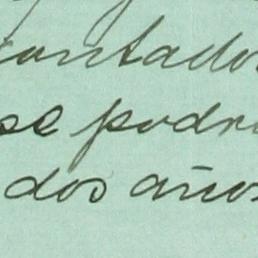 contado
se podr
dos años